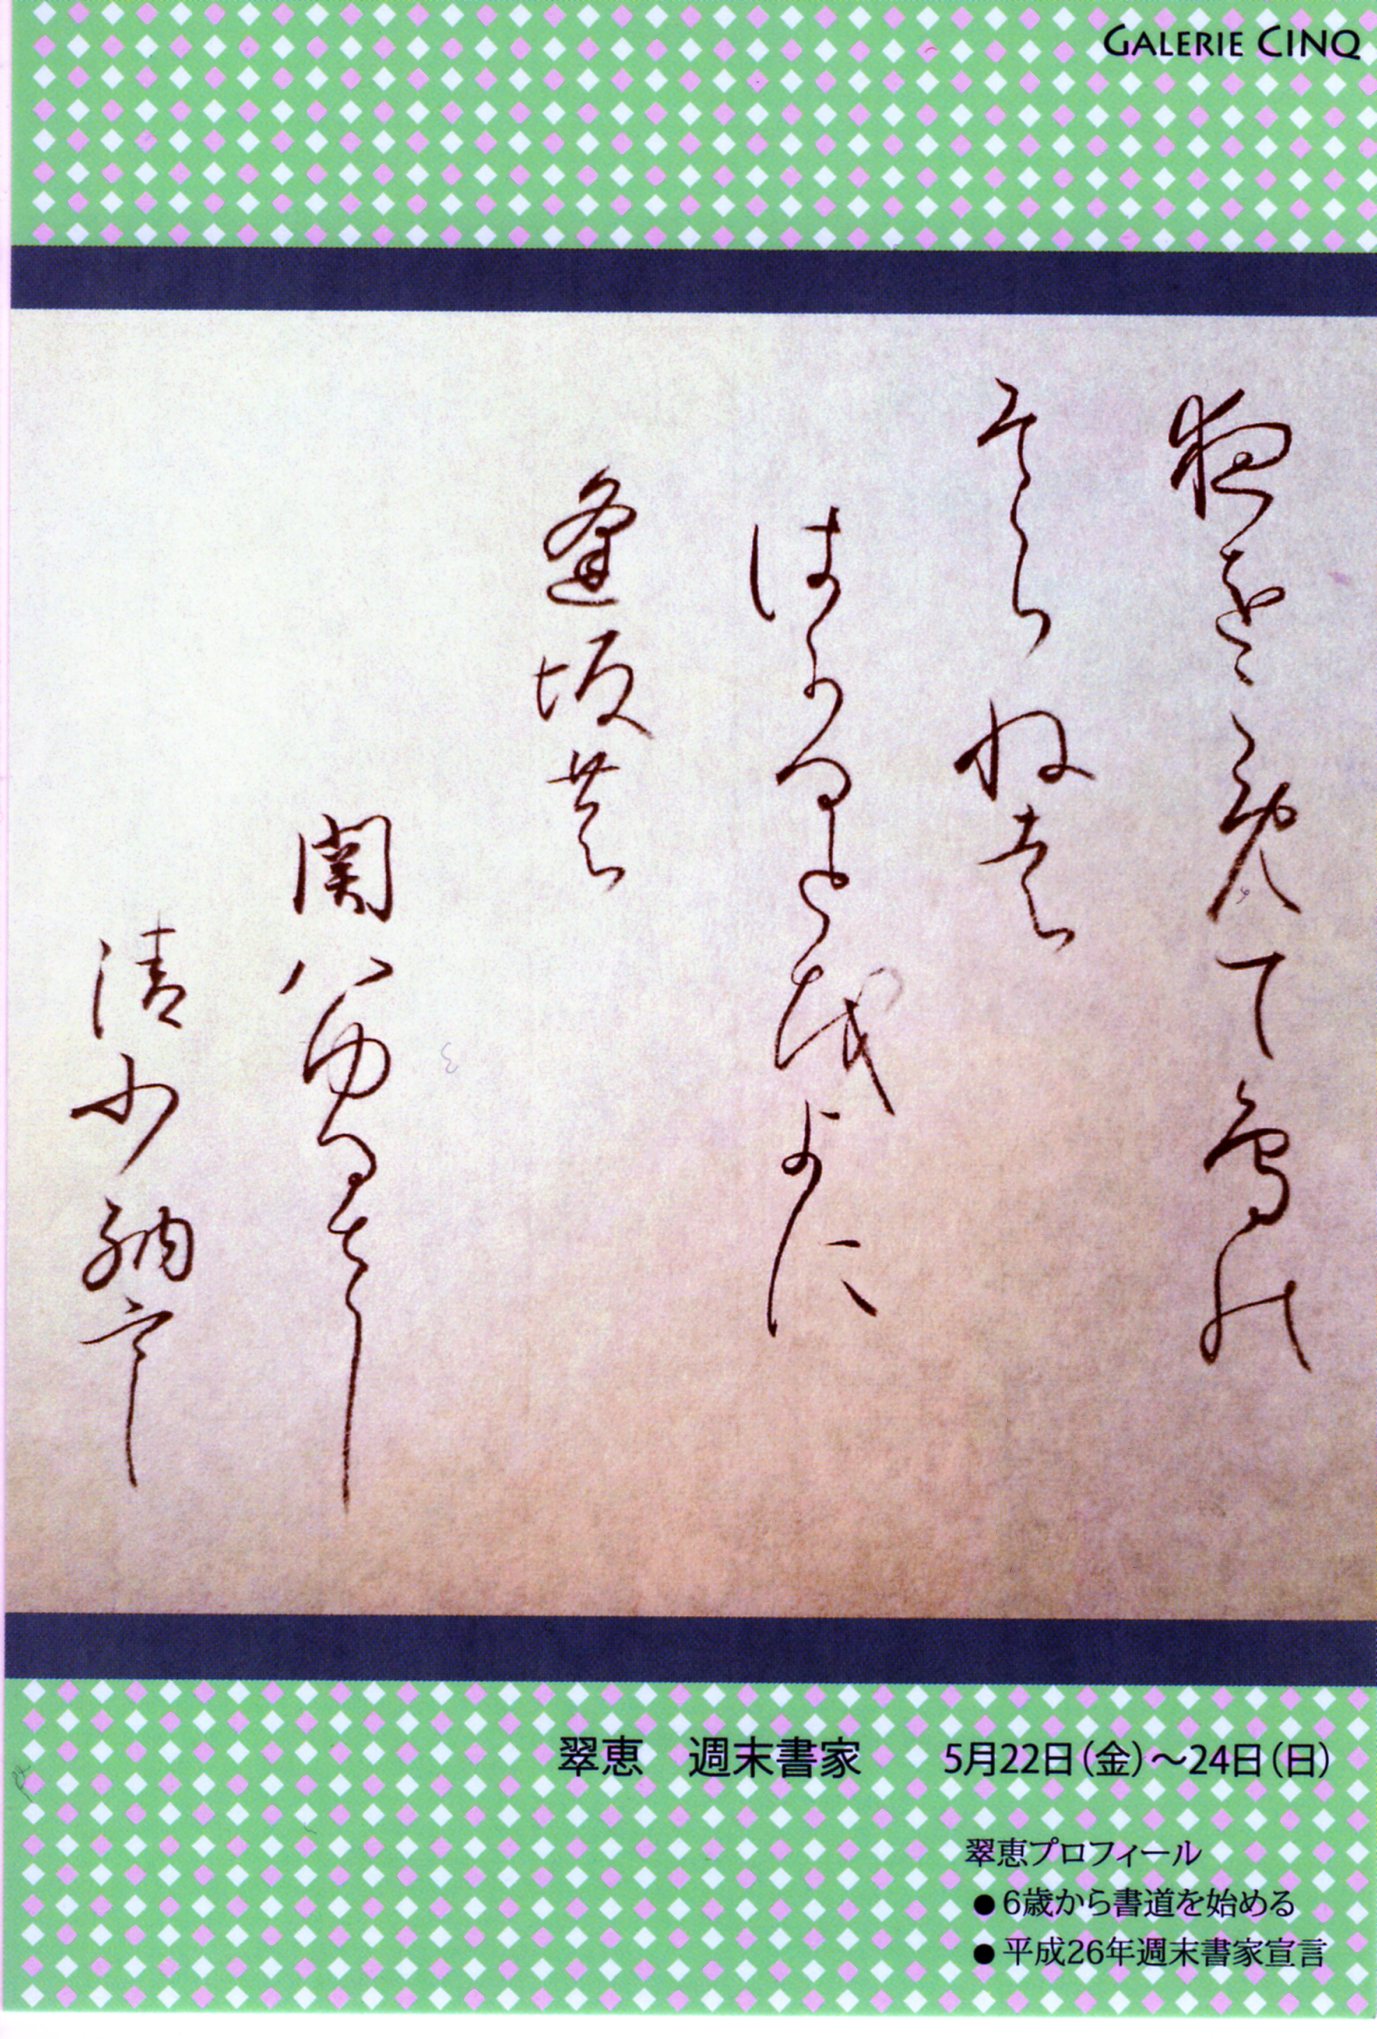 GALERIE CINQ
夜をこめて鳥の
そらねは
はかるともよに
逢坂の
関ハゆるさし
清少納言
翠恵　週末書家　5月22日（金）～24日（日）
翠恵プロフィール
●6歳から書道を始める
●平成26年週末書家宣言